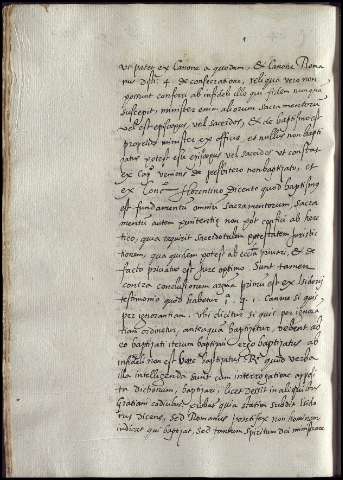 ut patet ex Canone a quodam, et Canone Roma
nus dist. 4. de consecratione, reliqua vero non
possunt conferri ab infideli illo qui fidem nunquam
suscepit, minister enim aliorum sacramentorum
vel est episcopus, vel sacerdos, et de baptismo est
proprius minister ex officio, et nullus non bapti
zatus potest esse episcopus vel sacerdos ut constat
ex Cap. veniens de presbitero non baptizato, et
ex Conc. florentino dicente quod baptismus
est fundamentum omnium sacramentorum, sacra
mentum autem penitentie non pot confici ab here
tico, quia requirit sacerdotalem potestatem jurisdic
tionem, qua quidem potest ab eccla. privari, et de
facto privatus est jure optimo. Sunt tamen
contra conclusionem arguta primum est ex Isidorij
testimonio quod habetur 1. q. 1. Canone si quis
per ignorantiam. ubi dicitur si quis per ignora
tiam ordinetur, antequam baptizetur, debent ab
eo baptizati iterum baptizari ergo baptizatus ab
infideli non est vere baptizatus. Rx. quod verba
illa intelligenda sunt cum interrogatione
dictionum, baptizari, licet desit in aliquibus
Gratiani codicibus quia statim subdit Isido
rus dicens, sed Romanus Pontifex non hominem
iudicat qui baptizat, sed tantum spiritum dei ministrare